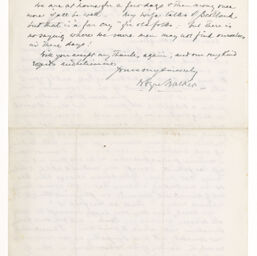 We are at home for a few days & then away once
more if all be well. My wife talks of Scotland,
but that is a far cry for us. But there is
no saying where we men may not find ourselves
in these days!
Will you accept my thanks, again, and our very kind
regards
Yours very sincerely
Walker